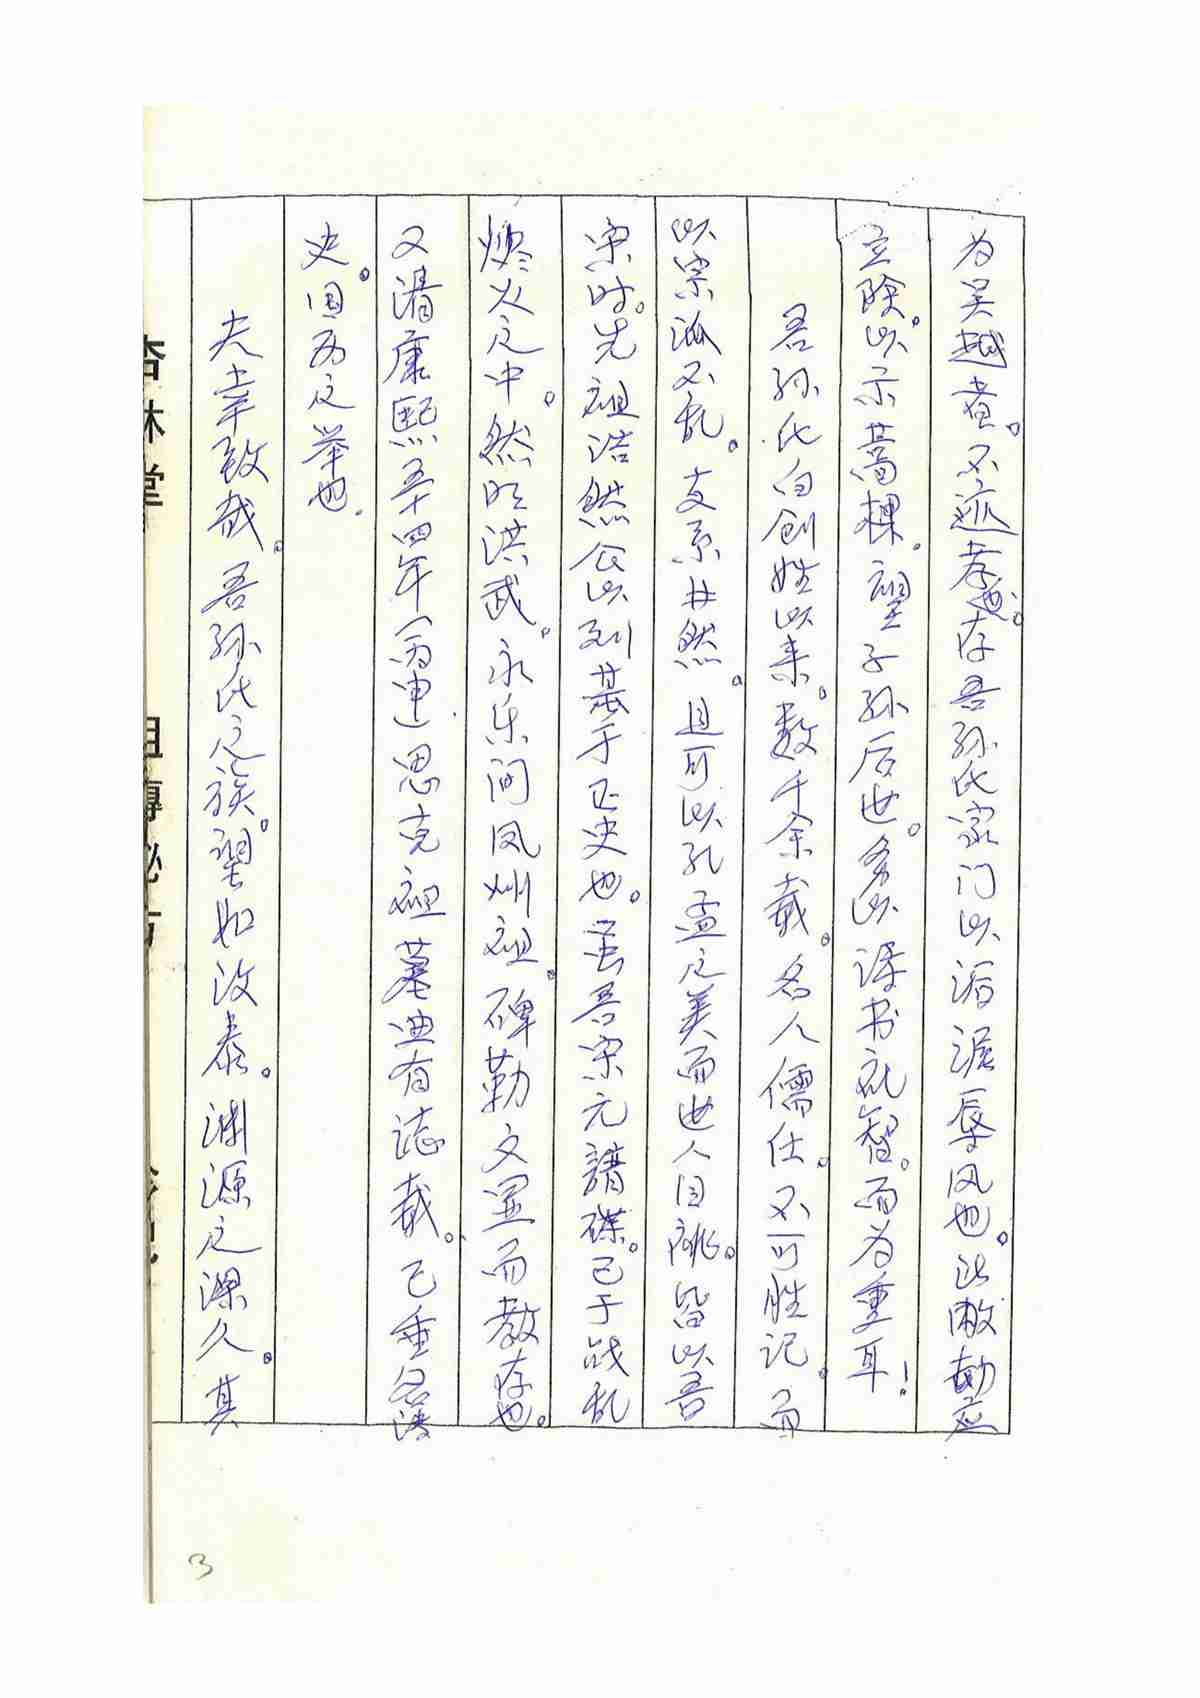 为吴越者。不逊孝也。存吾孙氏家门以滔泯辱风也。此敝勧应
立除。以示蒿棵。望子孙后世。多以课书礼智。而为重耳！
吾孙氏自创姓以来。数千余载。名人儒仕。不可胜记。而
以宗派不乱。支系井然。且可以孔孟之美而世人目眺。皆以吾
宋时。先祖浩然公以列基于正史也。虽吾宋元譜碟。已于战乱
燬火之中。然明洪武。永乐间凤州祖。碑勒文墨而教存也。
又清康熙五十四年（丙申）思克祖墓典有誌载。已垂名清
史。因为之举也。
夫幸致哉。吾孙氏之族。望如汝泰。渊源之深久。其
杏林堂
祖傳秘方
3